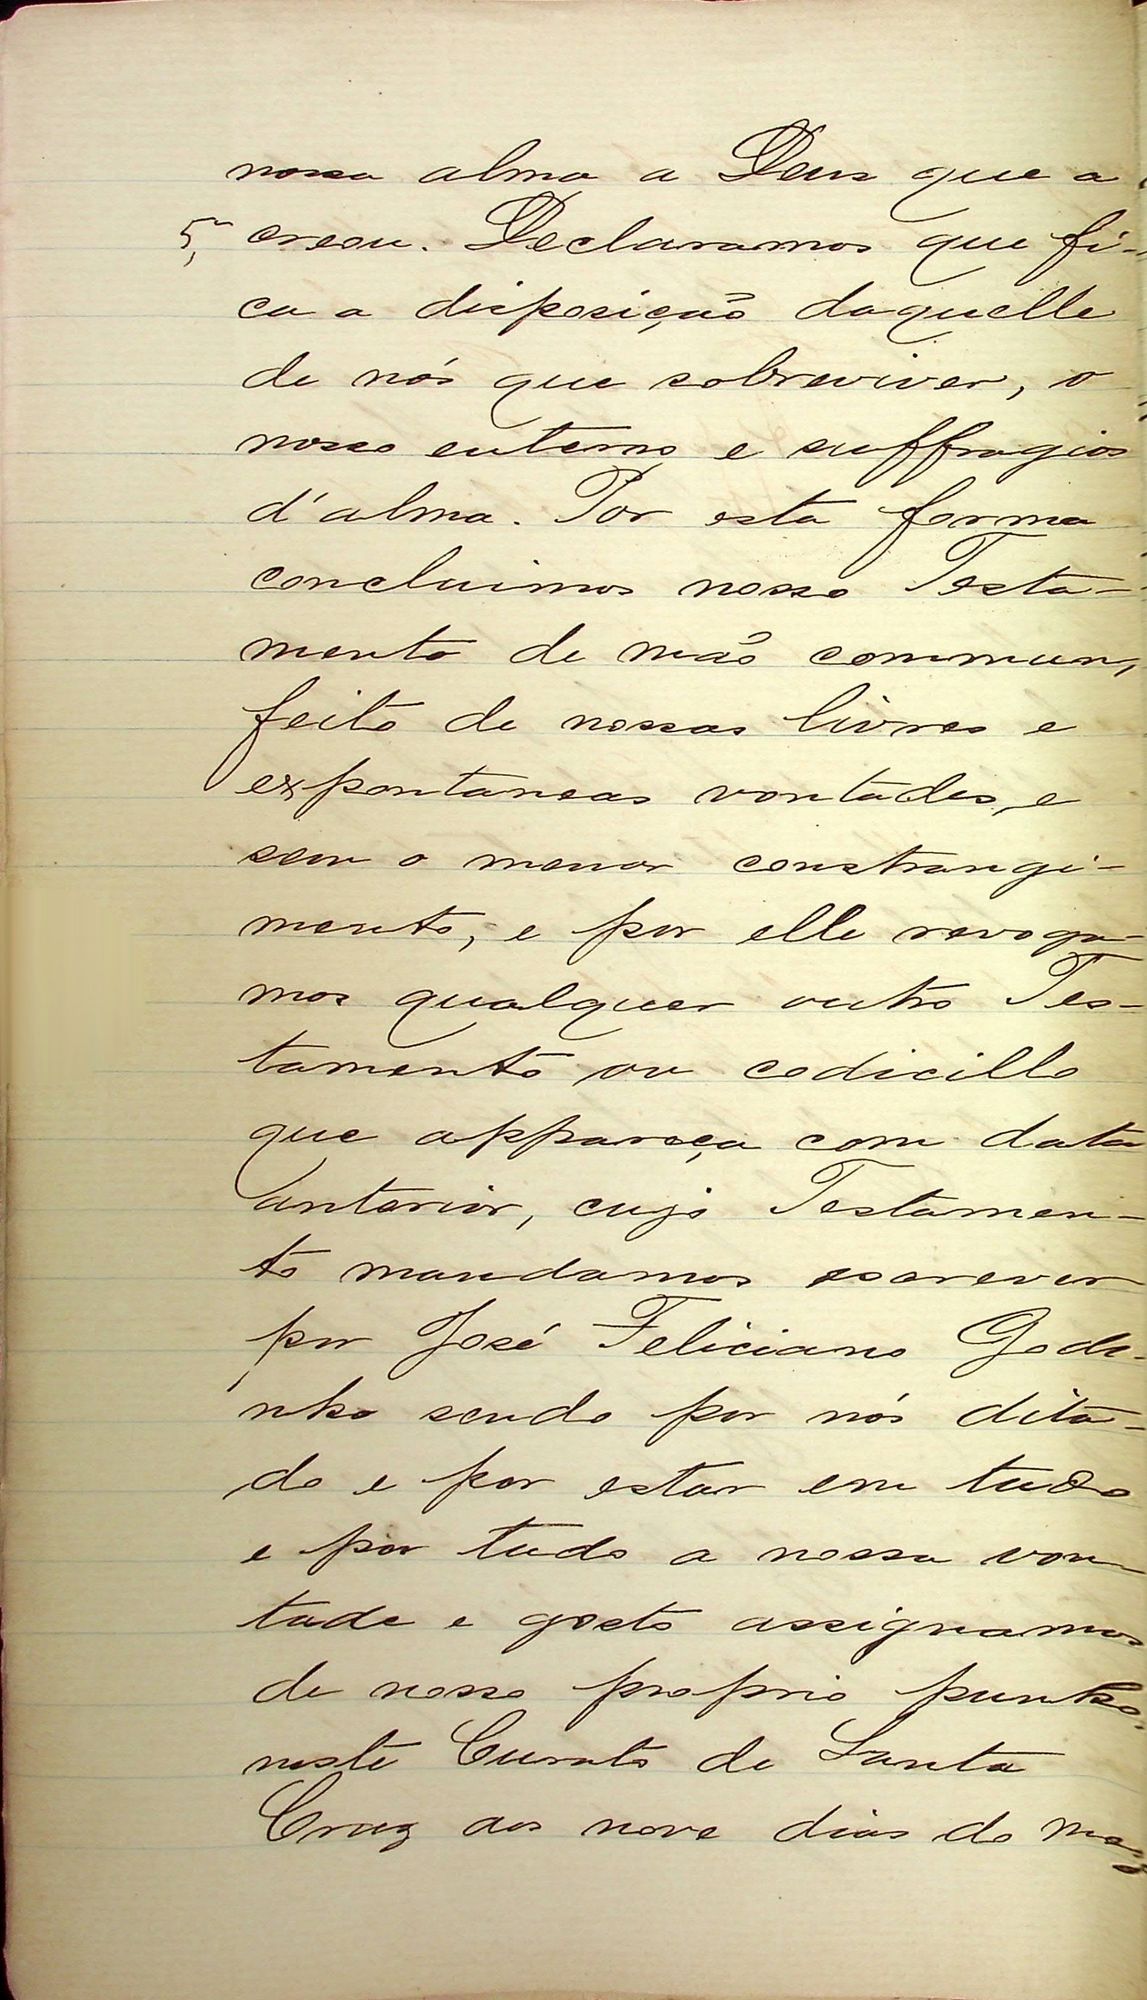 nossa alma a Deus que a
5ª creou. Declaramos que fi-
ca a disposição daquelle
de nós que sobreviver, o
nosso enterro e suffragios
d'alma. Por esta forma
concluimos nosso Testa-
mento de mão commum,
feito de nossas livres e
expontaneas vontades, e
sem o menor constrangi-
mento, e por elle revoga-
mos qualquer outro Tes-
tamento ou codicillo
que appareça com data
anterior, cujo Testamen-
to mandamos escrever
por José Feliciano Godi-
nho sendo por nós dita-
do e por estar em tudo
e por tudo a nossa von-
tade e gosto assignamos
de nosso proprio punho,
neste Curato de Santa
Cruz aos nove dias do